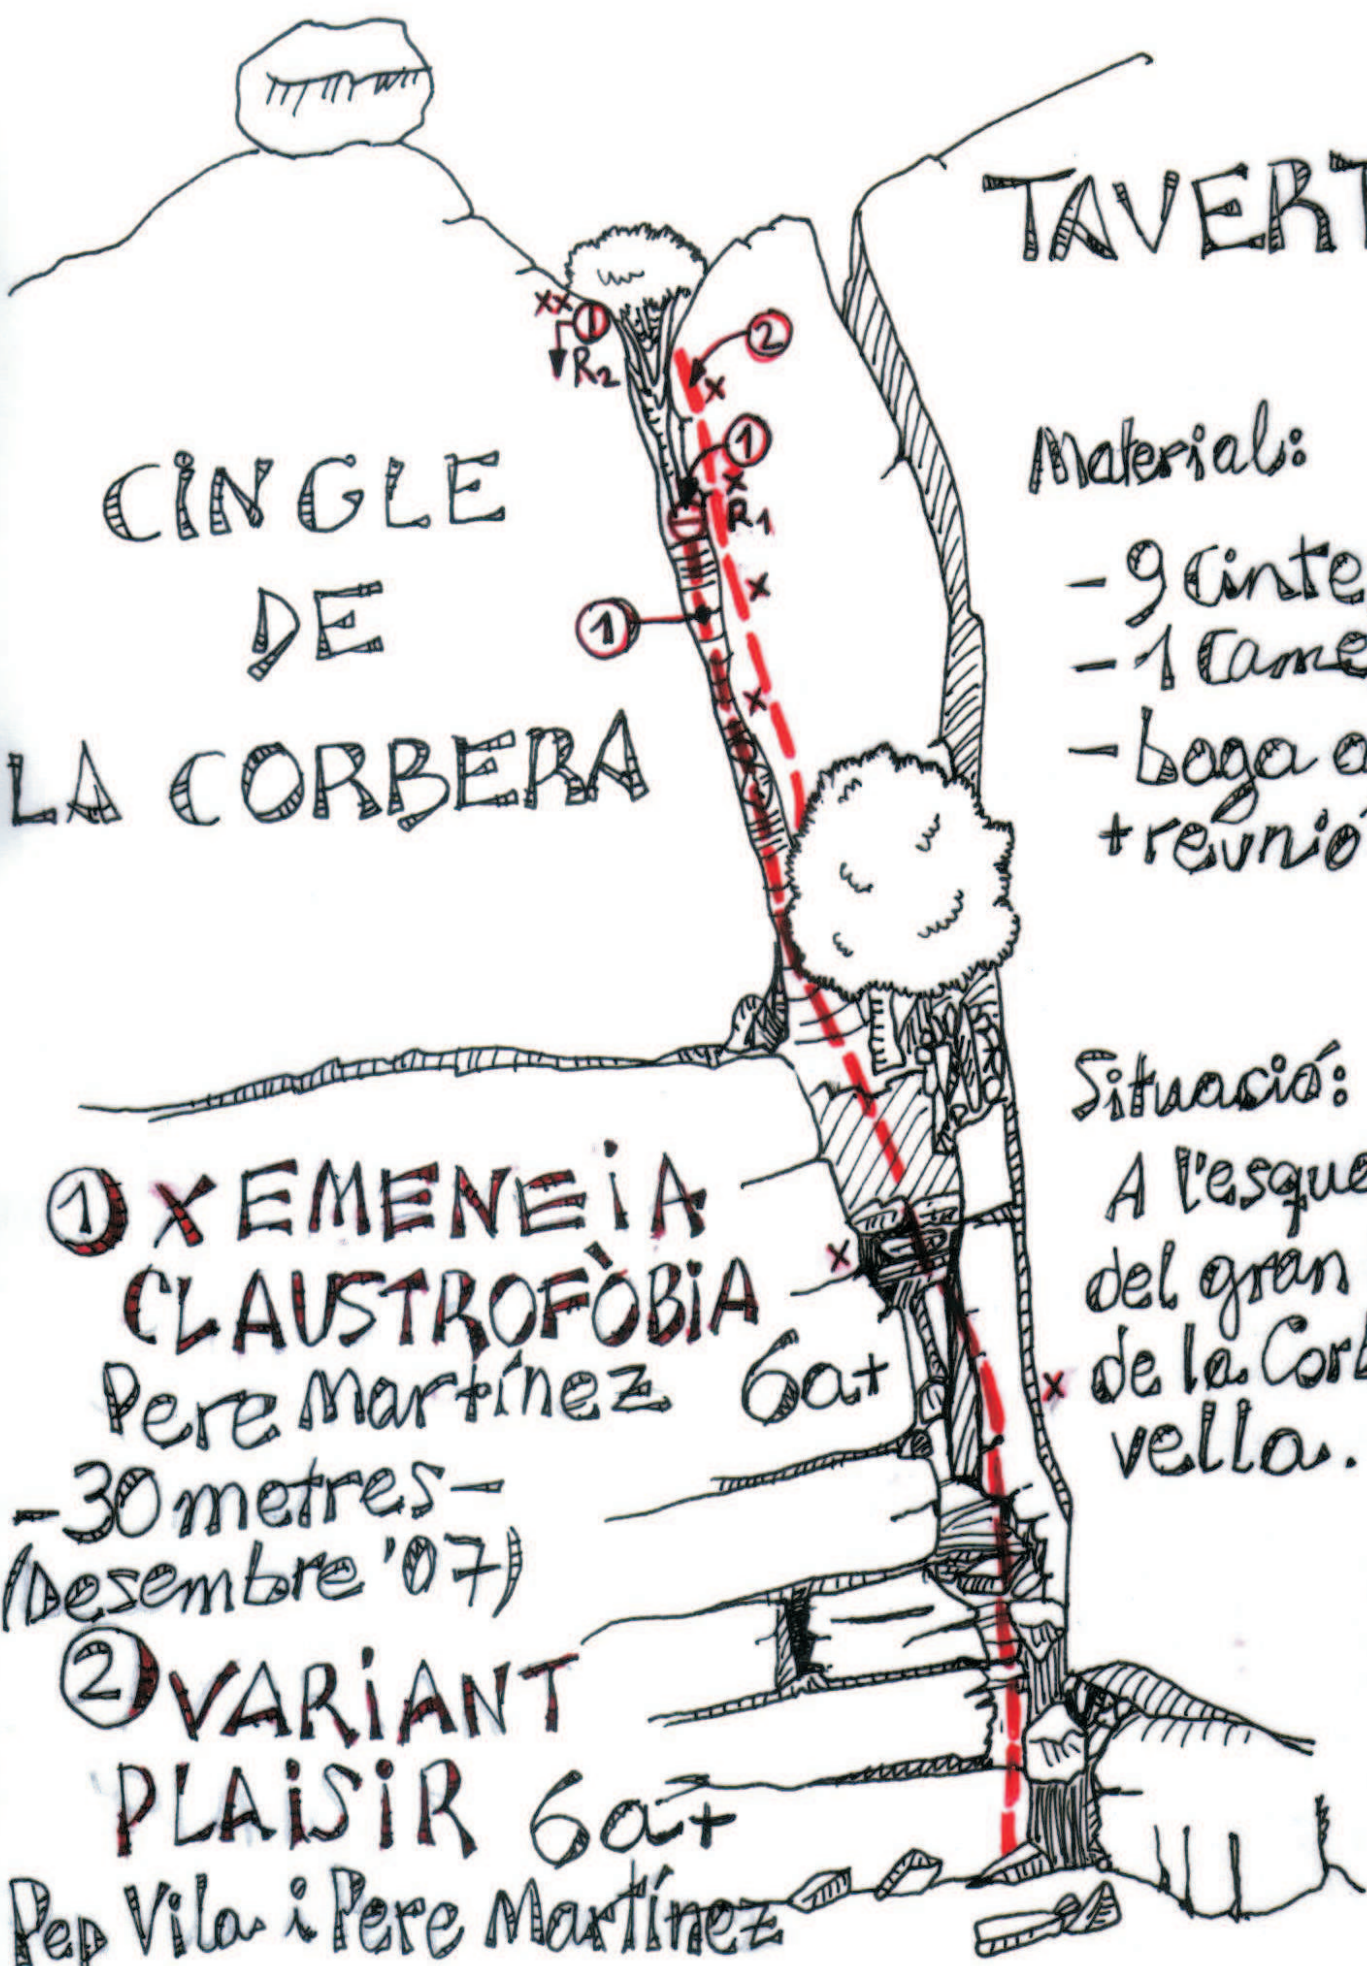 TAVERT
xx
R2
2
1
R1
1
CINGLE
DE
LA CORBERA
Material:
- 9 Cinte
- 1 Came
- baga a
+ reunió
Situasió:
A l'esque
del gran
de la Corb
vella.
1 XEMENEIA
CLAUSTROFÒBIA
Pere Martínez 6a+
-30 metres-
(Desembre '07)
2 VARIANT
PLAISIR 6a+
Pep Vila i Pere Martínez